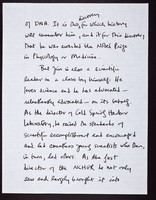 discovery
of DNA. It is this, for which history
will remember him, and it for this discovery,
that he was awarded the Nobel Prize
in Physiology or Medicine.
But Jim is also a scientific
leader in a class by himself. He
loves science and he has advocated -
relentlessly advocated - on its behalf.
As the director of Cold Spring Harbor
Laboratory, he raised the standards of
scientific accomplishment and encouraged
and led countless young scientists who have,
in turn, led others. As the first
director of the NCHGR he not only
saw and largely brought it into